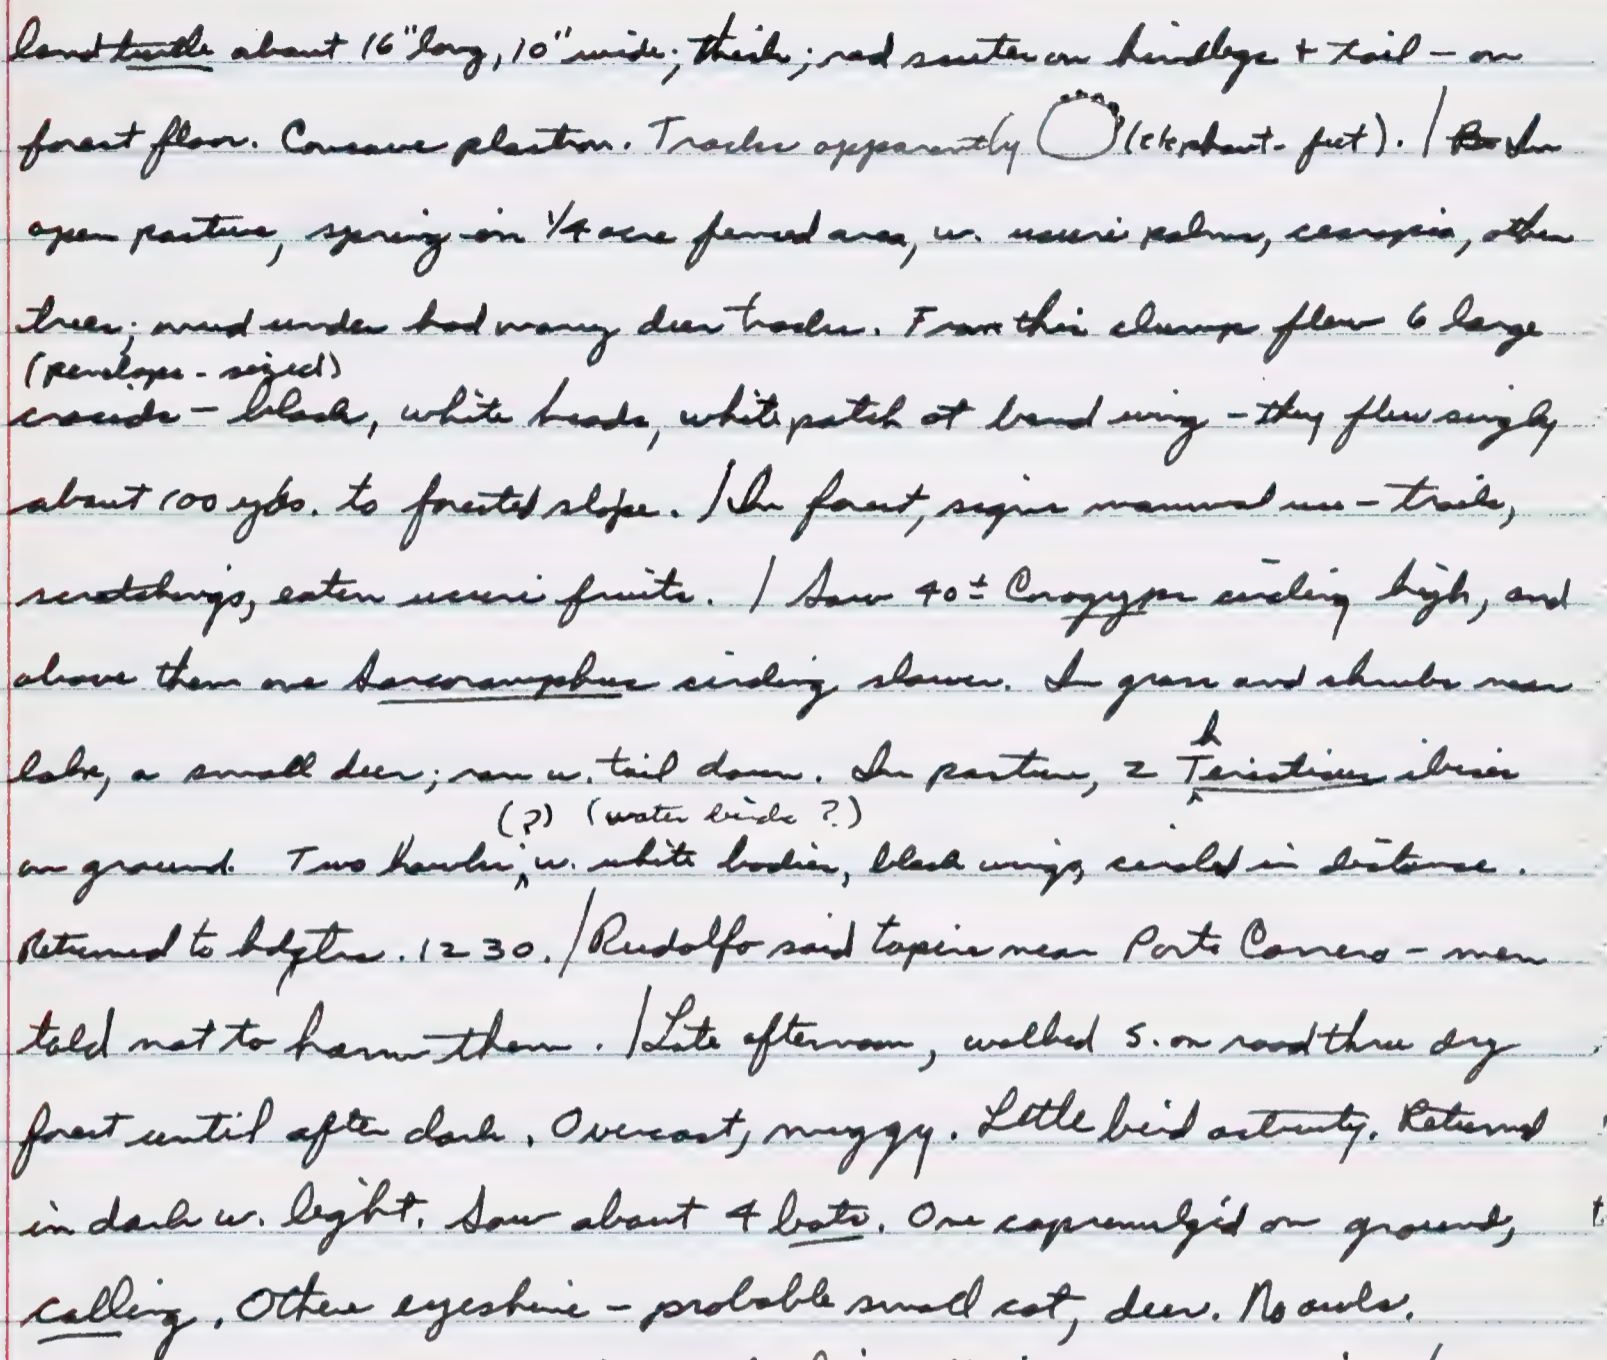 land turtle about 16" long, 10" wide; thick; red scutes on hindlegs + tail – on
forest floor. Concave plastron. Tracks apparently (elephant-feet). / In
open pasture, spring in 1/4 acre fenced area, w. usuri palms, cecropia, other
trees; mud under had many deer tracks. From this clump flew 6 large
(penelope-sized)
cracids – black, white heads, white patch at bend wing – they flew singly
about 100 yds. to forested slope. / In forest, signs mammal use – trails,
scratchings, eaten usuri fruits. / Saw 40± Coragyps circling high, and
above them one Sarcoramphus circling slower. In grass and shrubs near
lake, a small deer; ran w. tail down. In pasture, 2 Theristicus ibises
(?) (water birds ?)
on ground. Two hawks, w. white bodies, black wings, circled in distance.
Returned to hdqtrs. 1230. / Rudolfo said tapirs near Porto Carrero – men
told not to harm them. / Late afternoon, walked S. on road thru dry
forest until after dark. Overcast, muggy. Little bird activity. Returned
in dark w. light. Saw about 4 bats. One caprimulgid on ground,
calling. Other eyeshine – probable small cat, deer. No owls.